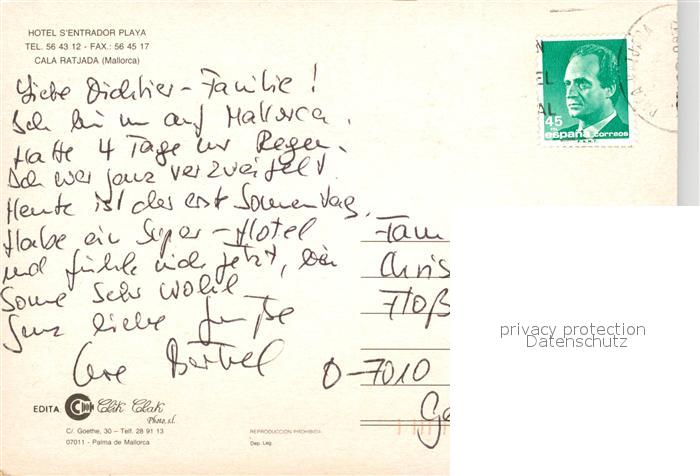 HOTEL S'ENTRADOR PLAYA
TEL. 56 43 12 - FAX.: 56 45 17
CALA RATJADA (Mallorca)
Liebe Dichtier-Familie!
Ich bin auf Mallorca.
Hatte 4 Tage nur Regen.
Ich war ganz verzweifelt.
Heute ist der erste Sonnentag.
Habe ein Super-Hotel
und fühle mich jetzt, bei
Sonne sehr wohl
Ganz liebe Grüße
Eure Bärbel
45
españa correos
Fam
Chris
Floß
O-7010
Ge
privacy protection
Datenschutz
EDITA:
Clik Clak
Photo, s.l.
C/. Goethe, 30 - Telf. 28 91 13
07011 - Palma de Mallorca
REPRODUCCION PROHIBIDA
Dep. Leg.